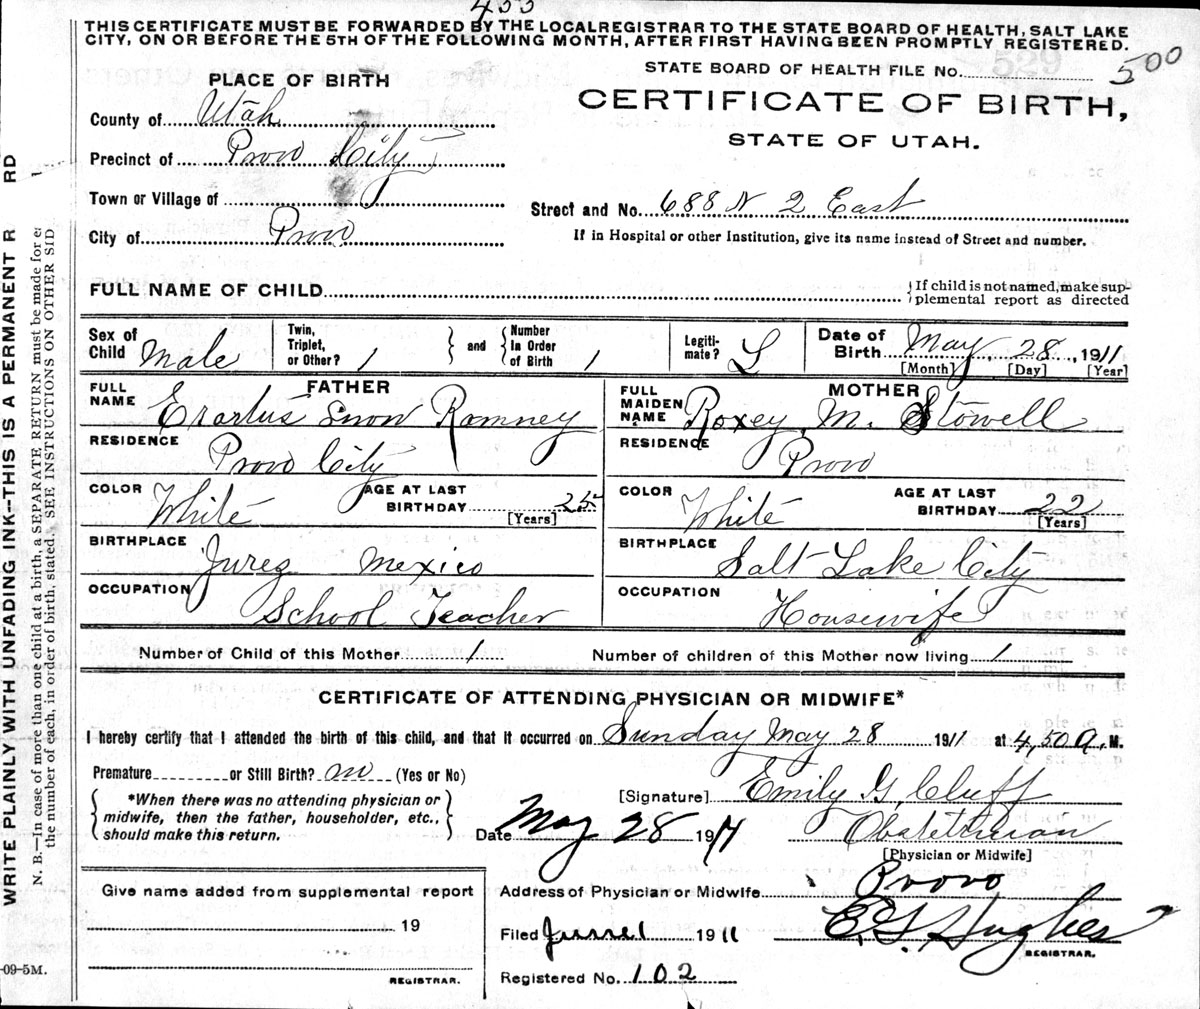 433
THIS CERTIFICATE MUST BE FORWARDED BY THE LOCAL REGISTRAR TO THE STATE BOARD OF HEALTH, SALT LAKE
CITY, ON OR BEFORE THE 5TH OF THE FOLLOWING MONTH, AFTER FIRST HAVING BEEN PROMPTLY REGISTERED.
STATE BOARD OF HEALTH FILE No. 529 500
PLACE OF BIRTH
CERTIFICATE OF BIRTH,
STATE OF UTAH.
County of Utah
Precinct of Provo City
Town or Village of
Street and No. 688 N 2 East
City of Provo
If in Hospital or other Institution, give its name instead of Street and number.
FULL NAME OF CHILD
If child is not named, make sup-
plemental report as directed
Sex of Child Male
Twin, Triplet, or Other? 1
and
Number In Order of Birth 1
Legiti-mate? L
Date of Birth May 28, 1911
[Month] [Day] [Year]
FATHER
FULL NAME Erastus Snow Romney
RESIDENCE Provo City
COLOR White AGE AT LAST BIRTHDAY 25 [Years]
BIRTHPLACE Jurez Mexico
OCCUPATION School Teacher
MOTHER
FULL MAIDEN NAME Roxey M. Stowell
RESIDENCE Provo
COLOR White AGE AT LAST BIRTHDAY 22 [Years]
BIRTHPLACE Salt Lake City
OCCUPATION Housewife
Number of Child of this Mother 1 Number of children of this Mother now living 1
CERTIFICATE OF ATTENDING PHYSICIAN OR MIDWIFE*
I hereby certify that I attended the birth of this child, and that it occurred on Sunday May 28 1911 at 4,50 a, M.
Premature or Still Birth? no (Yes or No)
*When there was no attending physician or
midwife, then the father, householder, etc.,
should make this return.
[Signature] Emily G, Cluff
Date May 28 1911 Obstetrician
[Physician or Midwife]
Give name added from supplemental report
19
REGISTRAR.
Address of Physician or Midwife Provo
Filed 1911 E. G. Hughes
REGISTRAR.
Registered No. 102
WRITE PLAINLY WITH UNFADING INK--THIS IS A PERMANENT R RD
N. B.—In case of more than one child at a birth, a SEPARATE RETURN must be made for e
the number of each, in order of birth, stated. SEE INSTRUCTIONS ON OTHER SID
-09-5M.